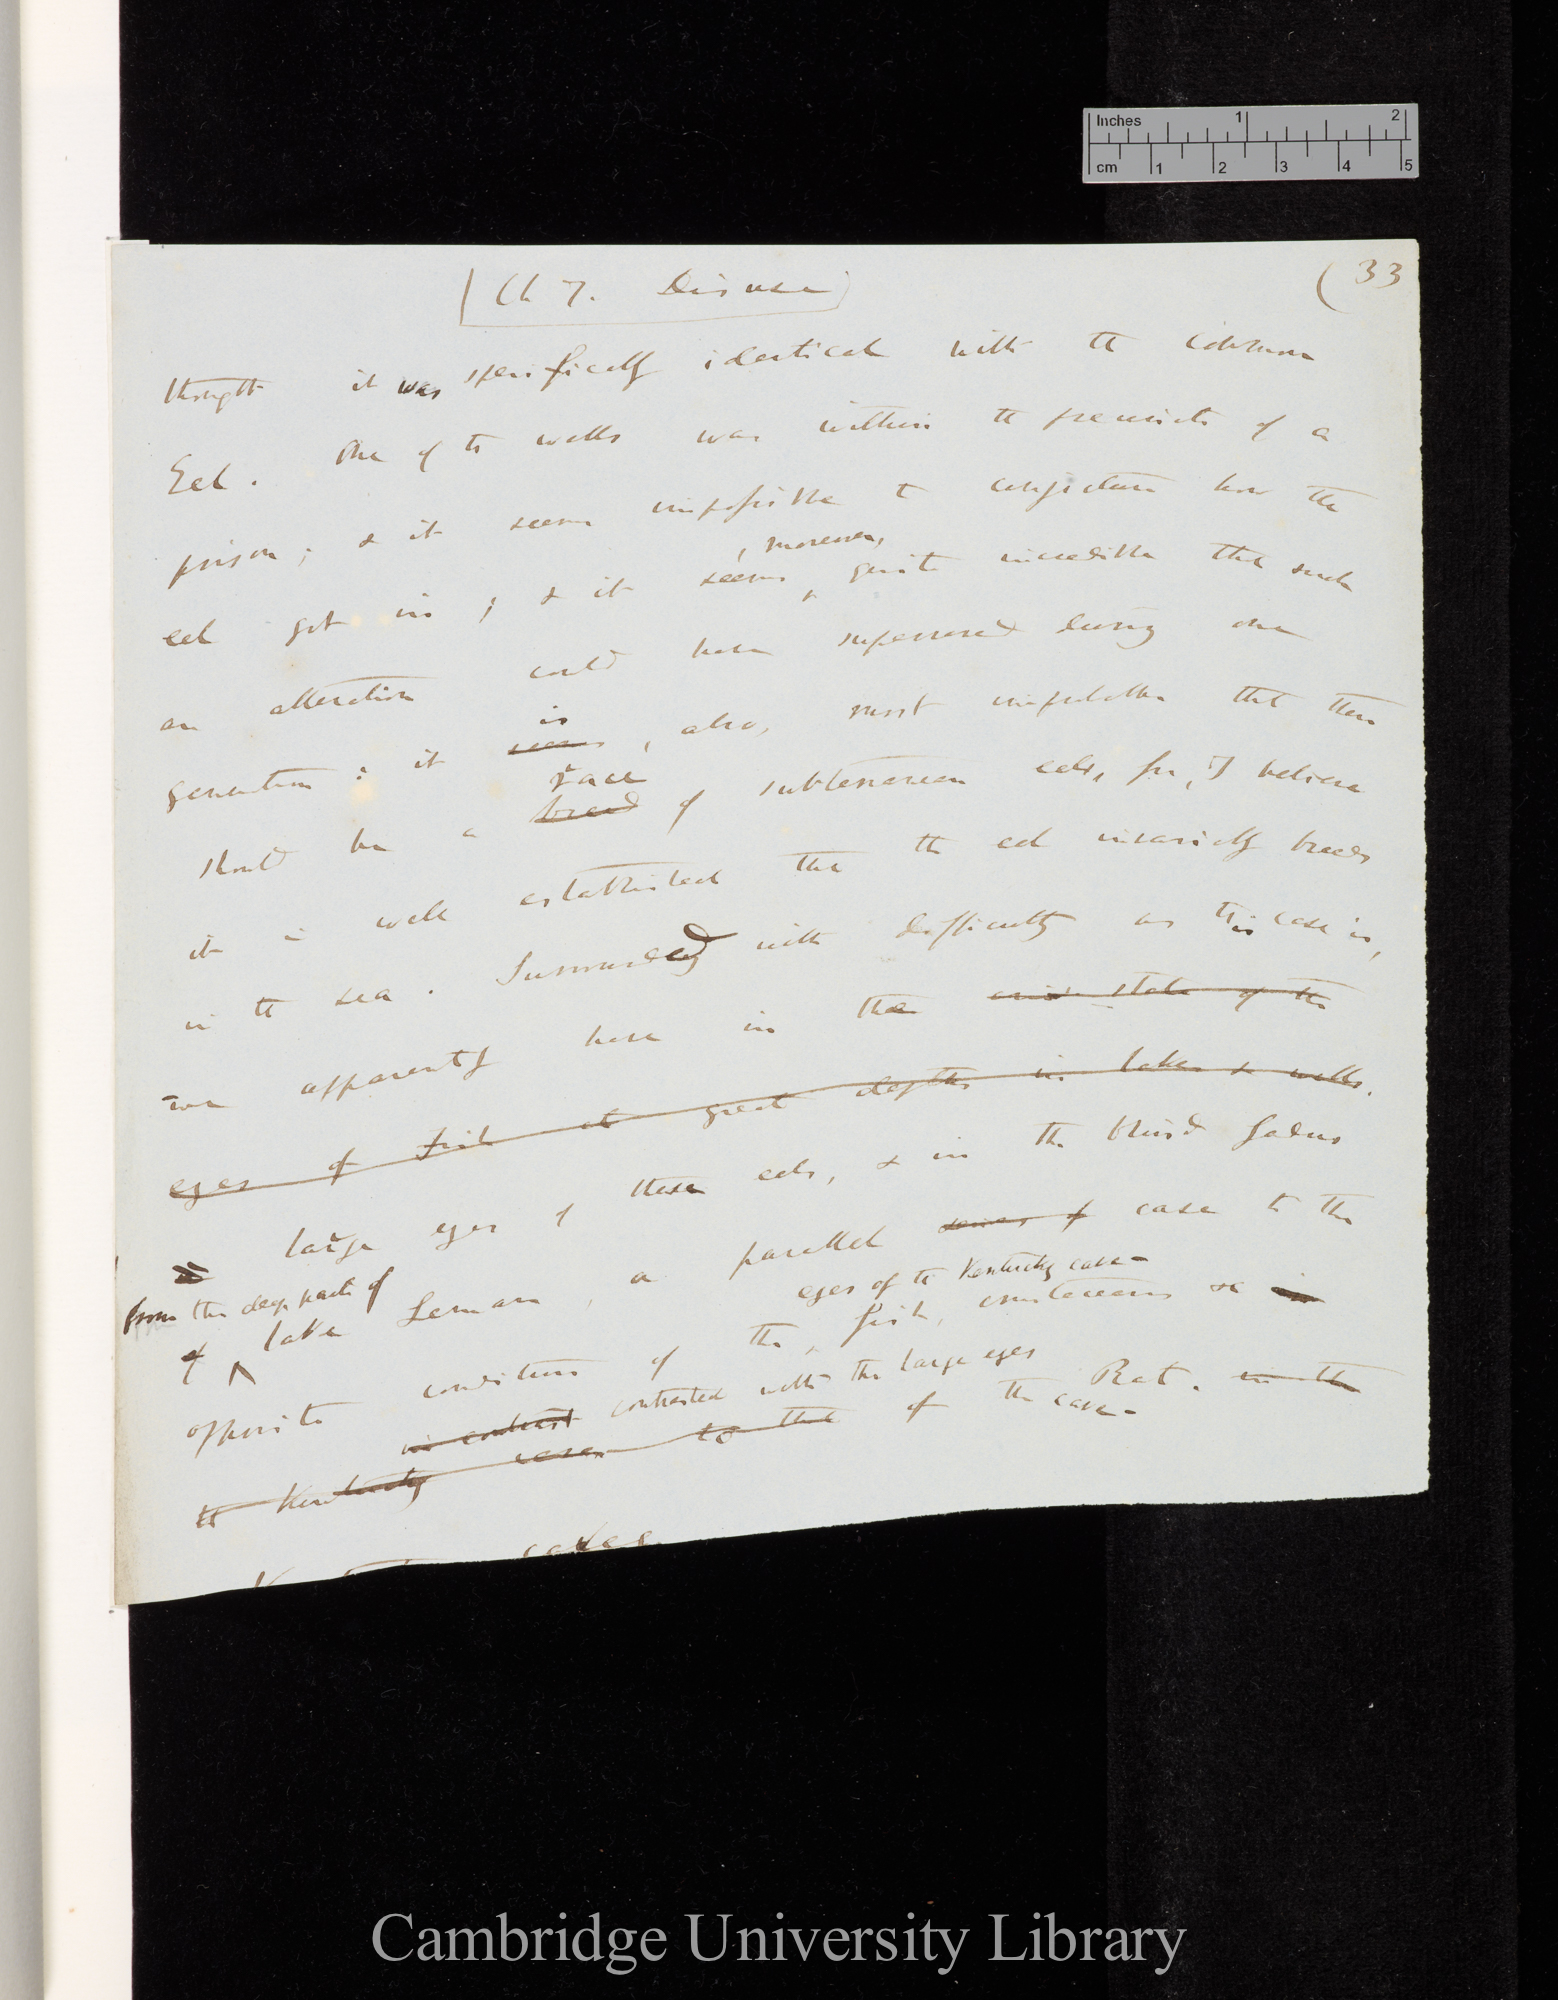 Inches 1 2
cm 1 2 3 4 5
(33
Ch 7. Disuse
thought it was specifically identical with the common
Eel. One of the wells was within the precincts of a
prison; & it seems impossible to conjecture how the
, moreover,
eel got in; & it seems quite incredible that such
an alteration could have supervened during one
is
generation: it seems, also, most improbable that there
race
should be a breed of subterranean eels, for, I believe
it is well established that the eel invariably breeds
in the sea. Surrounded with difficulty as this case is,
we apparently have in the state of the
eyes of fish at great depths in lakes & wells.
large eyes of these eels, & in the blind Gadus
from the deep parts of
of lake Leman, a parallel series of case to the
eyes of the Kentucky case-
opposite conditions of the fish, crustaceans &c in
in contrast contrasted with the large eyes
the Kentucky cases to that of the cave- Rat. in the